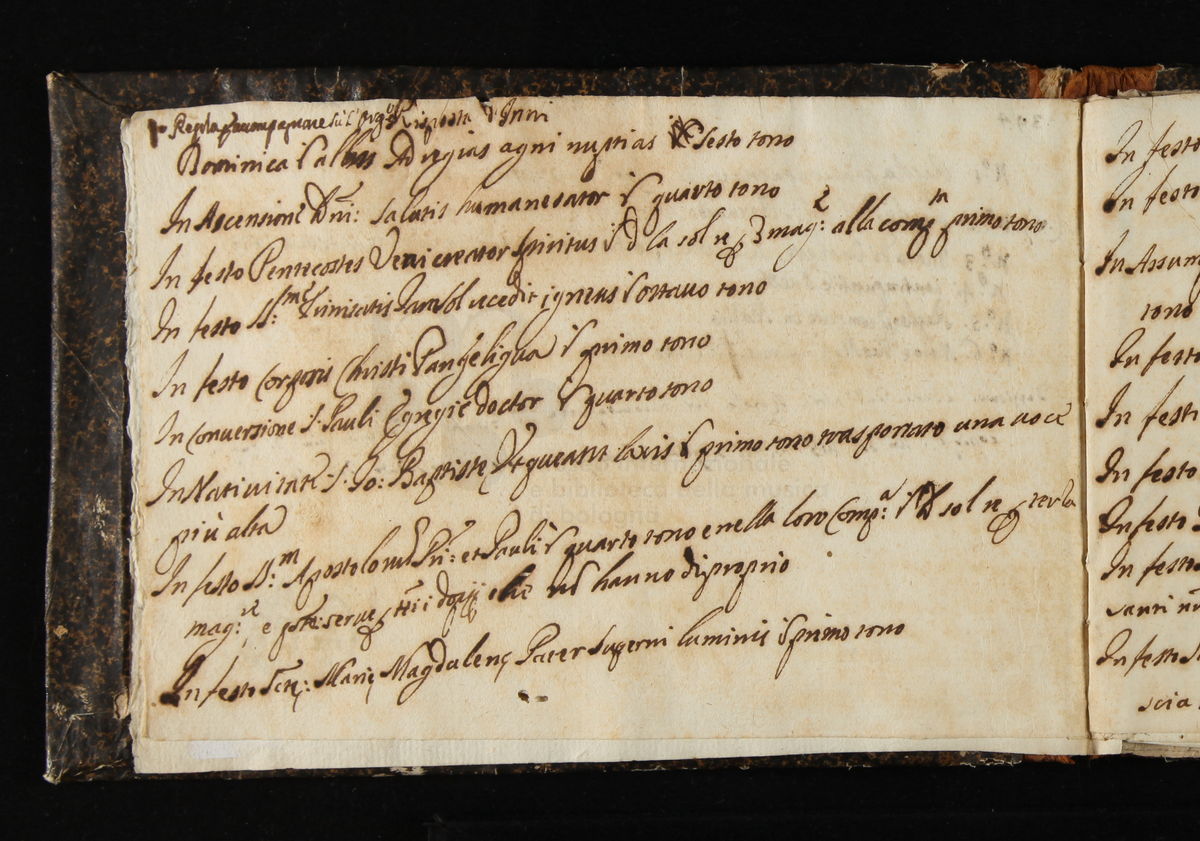 Regola p accompagnare sù l'Org.º Risposta d'Inni
Dominica i albis Ad regias agni nuptias Sesto tono
In Ascensione Dñi: Salutis humane sator i quarto tono
In festo Pentecostes Veni creator Spiritus i d la sol re p 3 mag:e alla comp.m primo tono
In festo S:me Trinitatis Iam sol recedit igneus i ottavo tono
In festo Corporis Christi Pange ligua i primo tono
In conversione S. Pauli Egregie doctor i quarto tono
In Nativitate S. Io: Baptiste Ut queant laxis i primo tono trasportato una voce
più alta
In festo S:m Apostolorũ Pri: et Pauli i quarto tono e nella loro comp.a i D sol re p terza
mag:re e serve p i doppij che nõ hanno di proprio
In festo Scte: Marie Magdalene Pater superni luminis i primo tono
In festo
In festo
In Assum
tono
In festo
In festi
In festo
In festo
In festo
In festo
scia